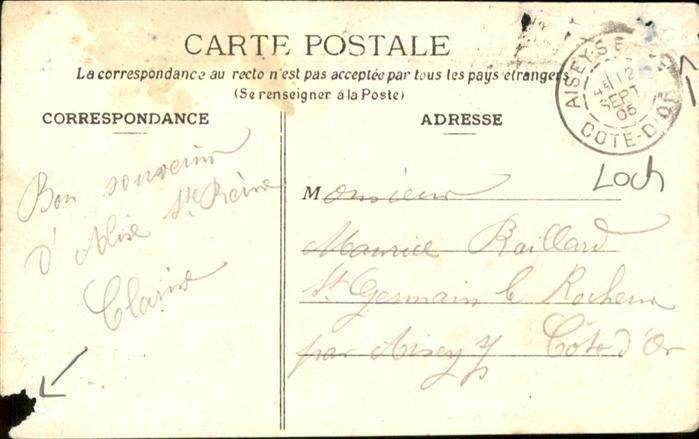 CARTE POSTALE
La correspondance au recto n'est pas acceptée par tous les pays étrangers
(Se renseigner à la Poste)
CORRESPONDANCE
ADRESSE
AISEY-S
12
SEPT
05
COTE-D'OR
Loch
Bon souvenir
d'Alise Ste Reine
Clarisse
Monsieur
Maurice Raillard
St Germain le Rocheux
par Aisey s/ Côte d'Or